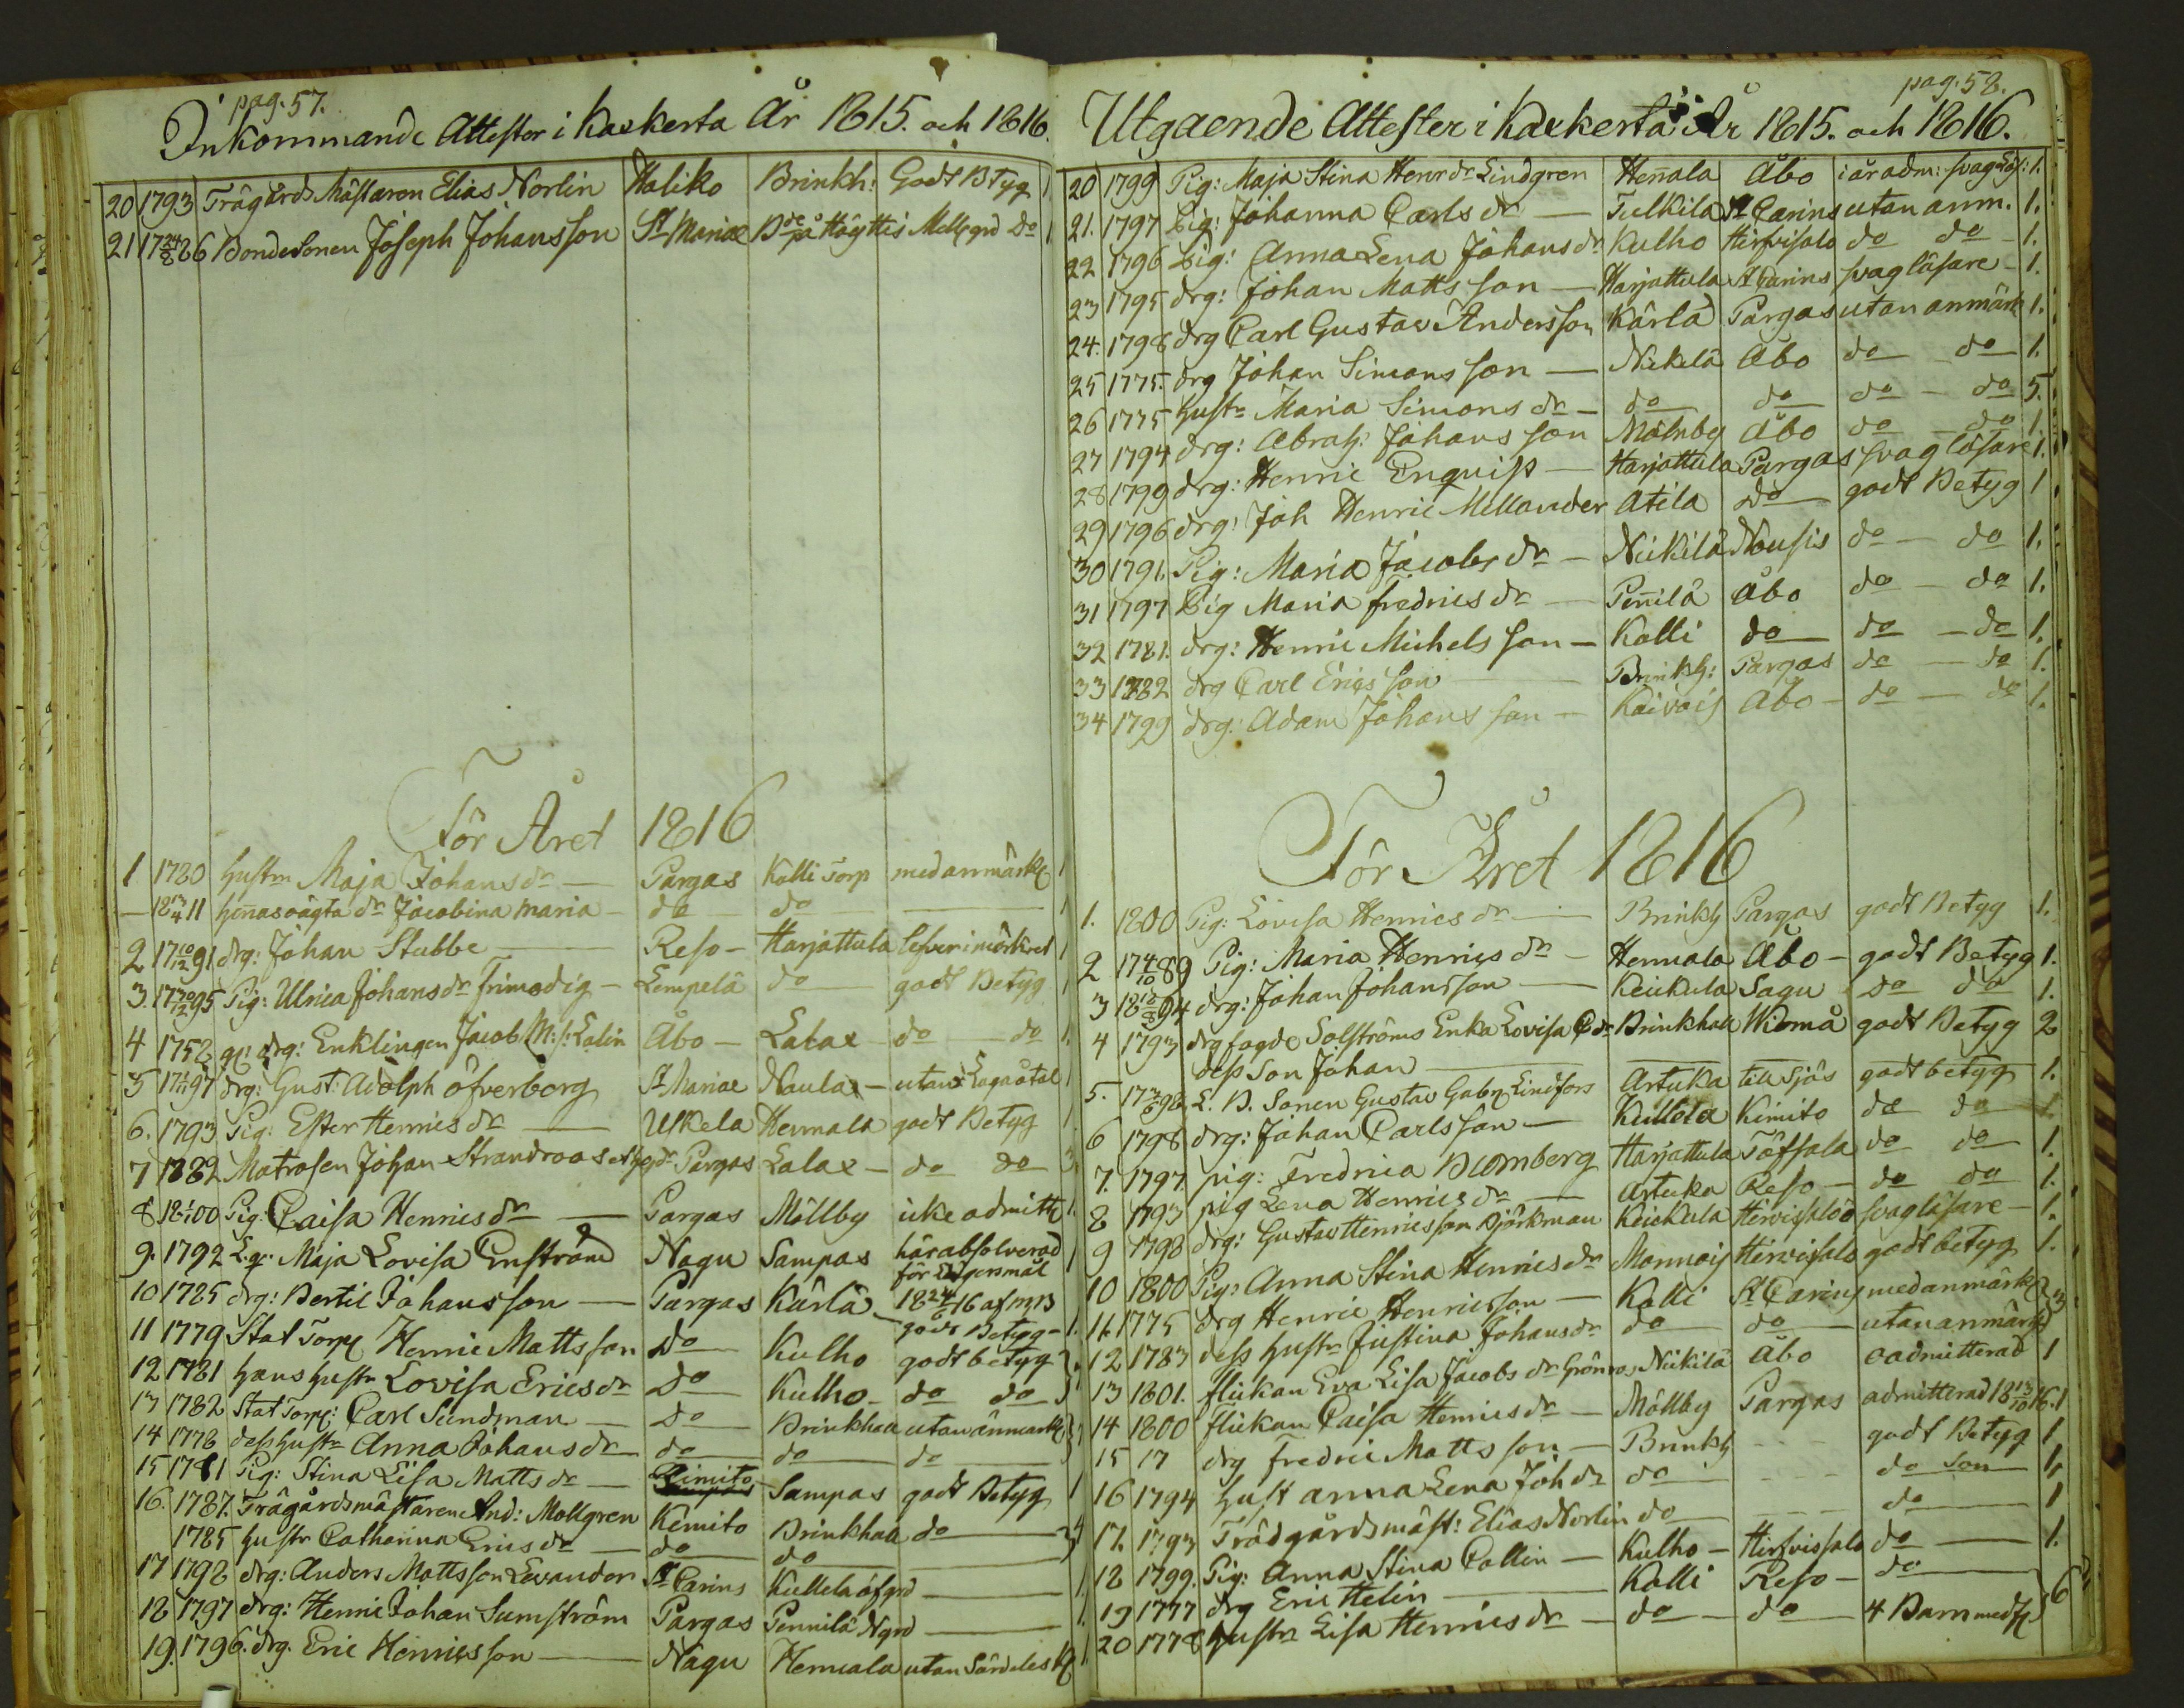 pag. 57.
Inkommande Attester i Kaxkerta År 1815. och 1816.
20 1793 Trägårds Mästaren Elias Norlin Haliko Brinkh: Godt Btyg 1
21 17 24/8 86 Bondesonen Joseph Johansson St Mariæ Bde på Höyttis Mellgrd Do 1
För Året 1816
1 1780 hustru Maja Johansdr — Pargas Kalli Torp med anmärk 1
— 18 13/4 11 hennas oägta dr Jacobina Maria — do do — 1
2 17 10/12 91 drg: Johan Stubbe — Reso — Harjattula 1
3. 17 30/12 95 Pig: Ulrica Johansdr Frimodig — Lempelä do godt Betyg 1
4 1752 drg: Enklingen Jacob M:s: Lalin Åbo — Lalax — do — do 1.
5 17 1/11 97 drg: Gust: Adolph Öfverberg St Mariae Naulax — utan Laga åtal 1
6. 1793 Pig: Ester Henricsdr — Uskela Hennala godt Betyg 1
7 1782 Matrosen Johan Strandroos Pargas Lalax — do do 3.
8 18 1/1 00 Pig: Caisa Henricsdr — Pargas Möllby icke admitt 1.
9. 1792 Maja Lovisa Enström Nagu Sampas här absolverad för lägersmål 1
10 1785 drg: Bertil Johansson — Pargas Kärlä — 18 24/ 16 af
godt Betyg — 1.
11 1779 Stat Torp Henric Mattsson Do Kulho godt betyg
12 1781 hans hustru Lovisa Ericsdr Do Kulho — do do
13 1782 Stat Torp: Carl Sundman — Do Brinkhall utan anmärk
14 1778 dess hustru Anna Johansdr do do do
15 1781 Pig: Stina Lisa Mattsdr — Kimito Sampas godt Betyg 1
16. 1787. Trägårdsmästaren And: Mollgren Kimito Brinkhall do
1785 hustr Catharina Ericsdr — do do
17 1792 drg: Anders Mattsson Levander St Carins Kullela öfgrd — 1
18 1797 drg: Henric Johan Sumström Pargas Pennilä Ngrd — 1.
19. 1796. drg. Eric Henricsson — Nagu Hennala utan särdeles 1.
pag. 58.
Utgaende Attester i Kaxkerta År 1815. och 1816.
20 1799 Pig: Maja Stina Henrdr Lindgren Hennala Åbo i år adm: svag läs: 1.
21. 1797 Pig: Johanna Carlsdr — Tulkila St Carins utan anm. 1.
22 1796 Pig: Anna Lena Johansdr Kulho Hirfvisalo do do — 1.
23 1795 drg: Johan Mattsson — Harjattula St Carins svag läsare — 1.
24. 1798 drg Carl Gustav Andersson Kärlä Pargas utan anmärk 1.
25 1775. drg Johan Simonsson — Nickilä Åbo do do 1.
26 1775 hustr Maria Simonsdr — do do do — do 5.
27 1794 drg: Abrah: Johansson Mölnby Åbo do — do 1.
28 1799 drg: Henric Enquist — Harjattula Pargas svag läsare 1.
29 1796 drg: Joh Henric Mellander Atila do godt Betyg 1
30 1791. Pig: Maria Jacobsdr — Nickilä Nousis do — do 1.
31 1797 Pig Maria Fredricsdr — Pennilä Åbo do — do 1.
32 1781. drg: Henric Michelsson — Kalli do do — do 1.
33 1782 drg Carl Ericsson — Brinkh: Pargas do — do 1.
34 1799 drg: Adam Johansson — Kaivois Åbo — do — do 1.
För Året 1816
1. 1800 Pig: Lovisa Henricsdr — Brinkh Pargas godt Betyg 1.
2 17 4/10 89 Pig: Maria Henricsdr — Hennala Åbo — godt Betyg 1.
3 18 12/8 94 drg: Johan Johansson — Keickula Sagu do do 1.
4 1793 drg fogde Solströms Enka Lovisa Cdr Brinkhall Widmå godt Betyg 2
dess Son Johan —
5. 17 96. L. B. Sonen Gustav Gabr Lindfors Artuka till Sjös godt betyg 1.
6 1798 drg: Johan Carlsson — Kullela Kimito do do 1.
7. 1797. pig: Fredrica Blomberg Harjattula Töfsala do do 1.
8 1793 pig Lena Henricsdr — Artuka Reso — do do 1.
9 1798 drg: Gustav Henricsson Björkman Keickula Hirvisalo svag läsare — 1.
10 1800 Pig: Anna Stina Henricsdr Monnois Hirvisalo godt betyg 1.
11. 1775 drg Henric Henricsson — Kalli St Carins med anmärk 3
12 1783 dess hustr Justina Johansdr do do — utan anmärk
13 1801. flickan Eva Lisa Jacobsdr Grönros Nickilä Åbo oadmitterad 1
14 1800 flickan Caisa Henricsdr — Möllby Pargas admitterad 18 13/10 16. 1
15 17 drg Fredric Mattsson — Brinkh — godt Betyg 1
16 1794 hust Anna Lena Johdr do — do son 1
17. 1793 Trädgårdsmäst: Elias Norlin do — do — 1
18 1799. Pig: Anna Stina Collin — Kulho — Hirfvissalo do — 1.
19 1777 drg Eric Helin — Kalli Reso — do — 6
20 1778 hustru Lisa Henricsdr — do — do 4 Barn med